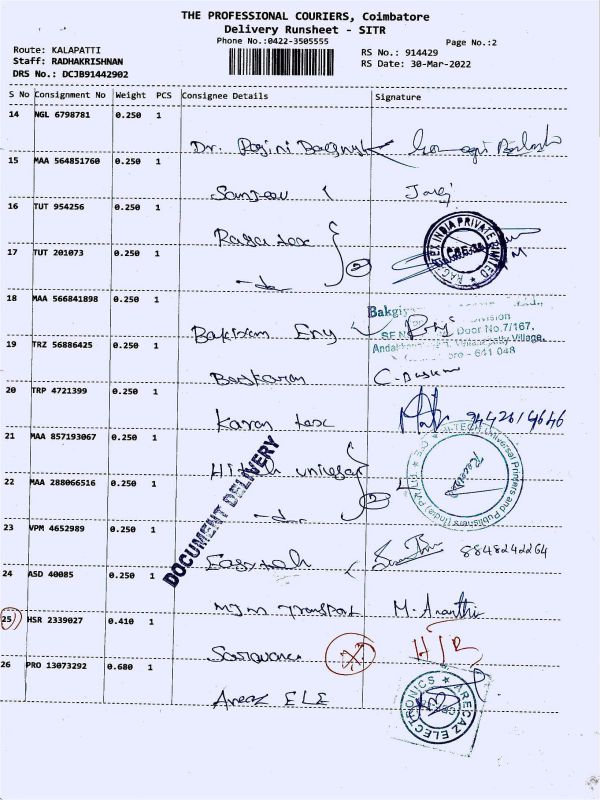 THE PROFESSIONAL COURIERS, Coimbatore
Delivery Runsheet - SITR
Phone No.:0422-3505555
Page No.:2
Route: KALAPATTI
Staff: RADHAKRISHNAN
DRS No.: DCJB91442902
RS No.: 914429
RS Date: 30-Mar-2022
S No Consignment No Weight PCS Consignee Details Signature
14 NGL 6798781 0.250 1
Dr.
15 MAA 564851760 0.250 1
Sanjeev
16 TUT 954256 0.250 1
Raga tex
RAG TEX INDIA PRIVATE LIMITED
17 TUT 201073 0.250 1
2
18 MAA 566841898 0.250 1
Bakgiy
Division
Door No.7/167,
Village,
641 048
19 TRZ 56886425 0.250 1
Baskaran
20 TRP 4721399 0.250 1
Karan tex
21 MAA 857193067 0.250 1
Hitech univesar
HI-TECH Universal Printers and Publishers (India) Pvt Ltd
Received
22 MAA 288066516 0.250 1
2
DOCUMENT DELIVERY
23 VPM 4652989 0.250 1
8848242264
24 ASD 40085 0.250 1
MJM Transport M. Ananthi
25 HSR 2339027 0.410 1
H/R
26 PRO 13073292 0.680 1
Arecaz ELE
ARECAZ ELECTRONICS